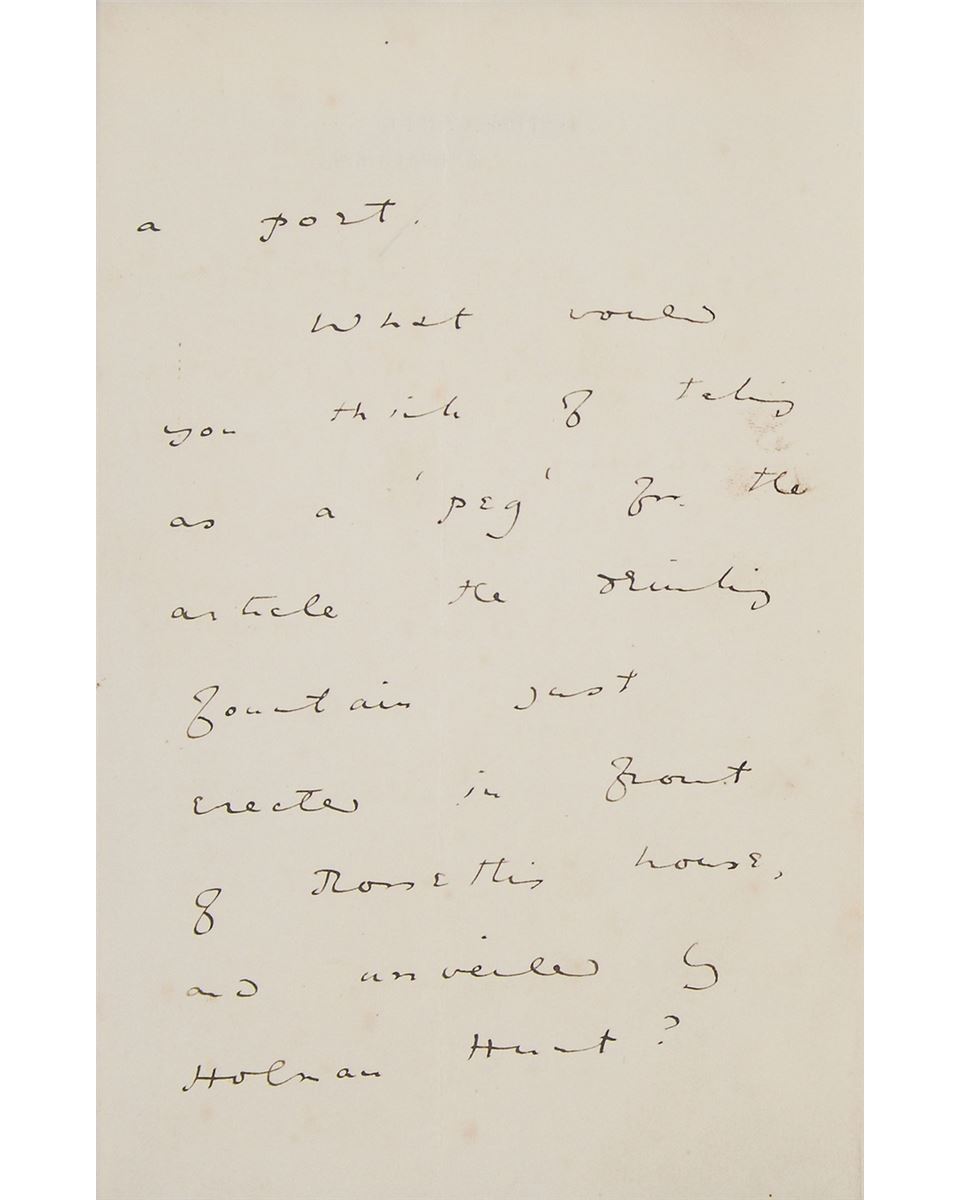 a post.
What would
you think of taking
as a 'peg' for the
article the drinking
fountain just
erected in front
of Rossettis house,
and unveiled by
Holman Hunt?